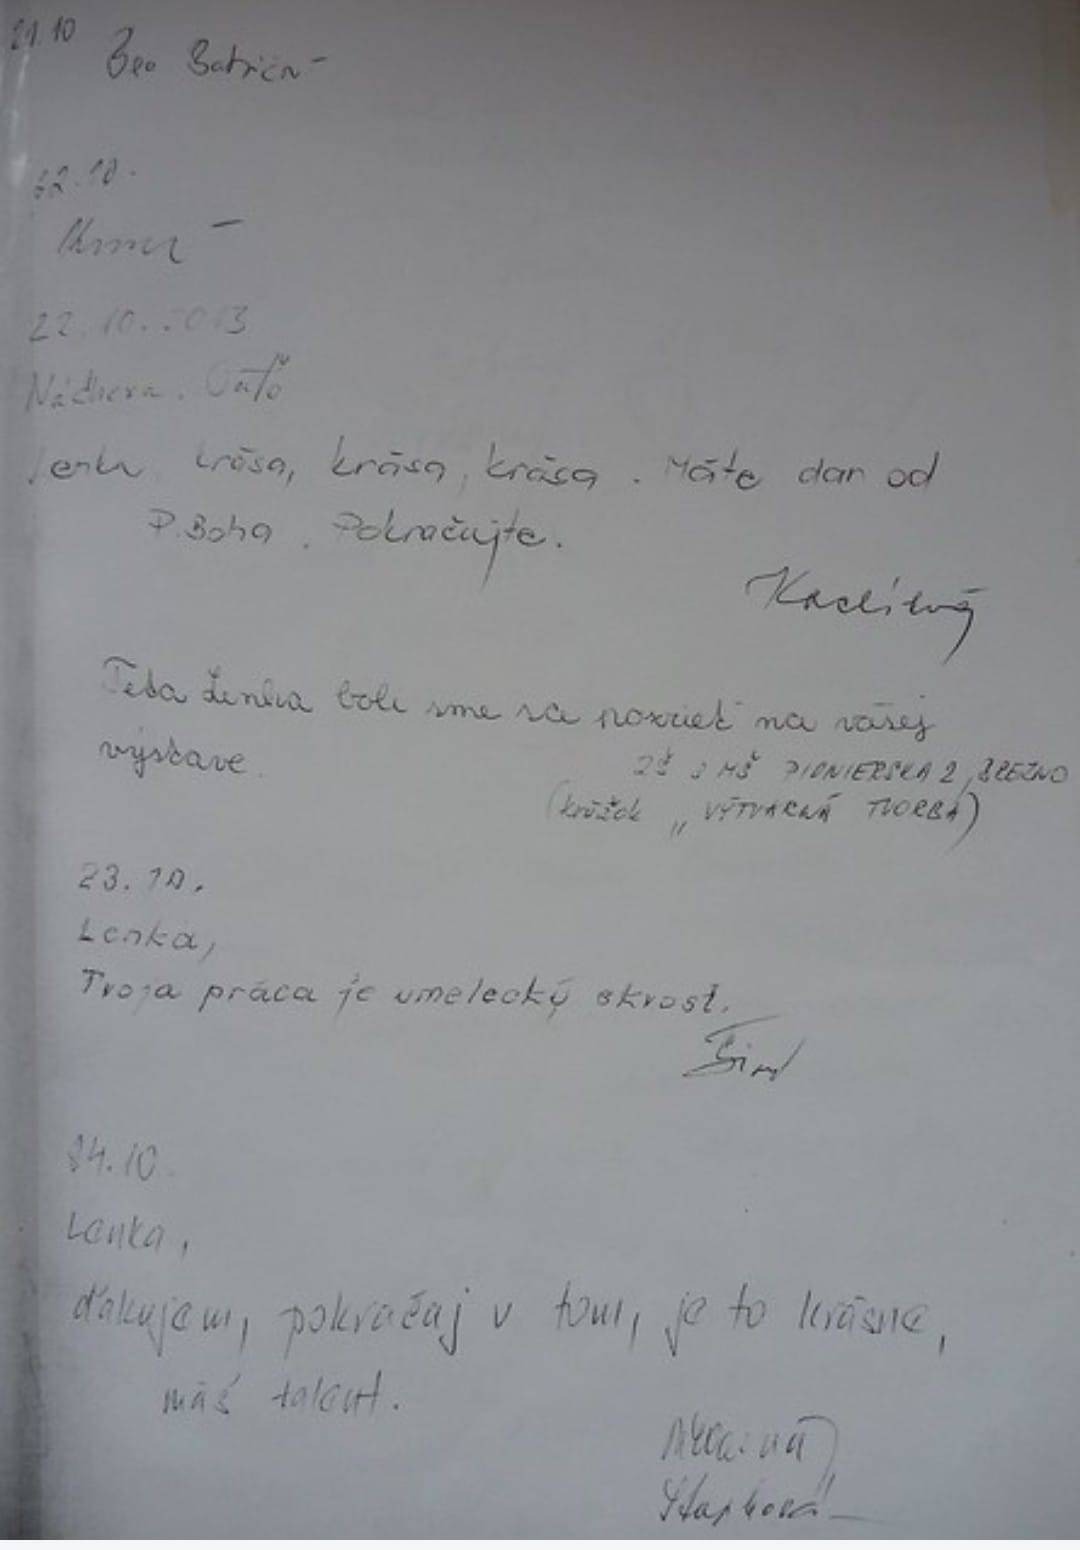 21.10
22.10.
22.10.2013
Nádhera.
krása, krása, krása. Máte dar od
P. Boha. Pokračujte.
Teta Lenka boli sme sa pozrieť na vašej
výstave.
ZŠ s MŠ PIONIERSKA 2, BREZNO
(krúžok „VÝTVARNÁ TVORBA)
23.10.
Lenka,
Tvoja práca je umelecký skvost.
24.10.
Lenka,
ďakujem, pokračaj v tom, je to krásne,
máš talent.